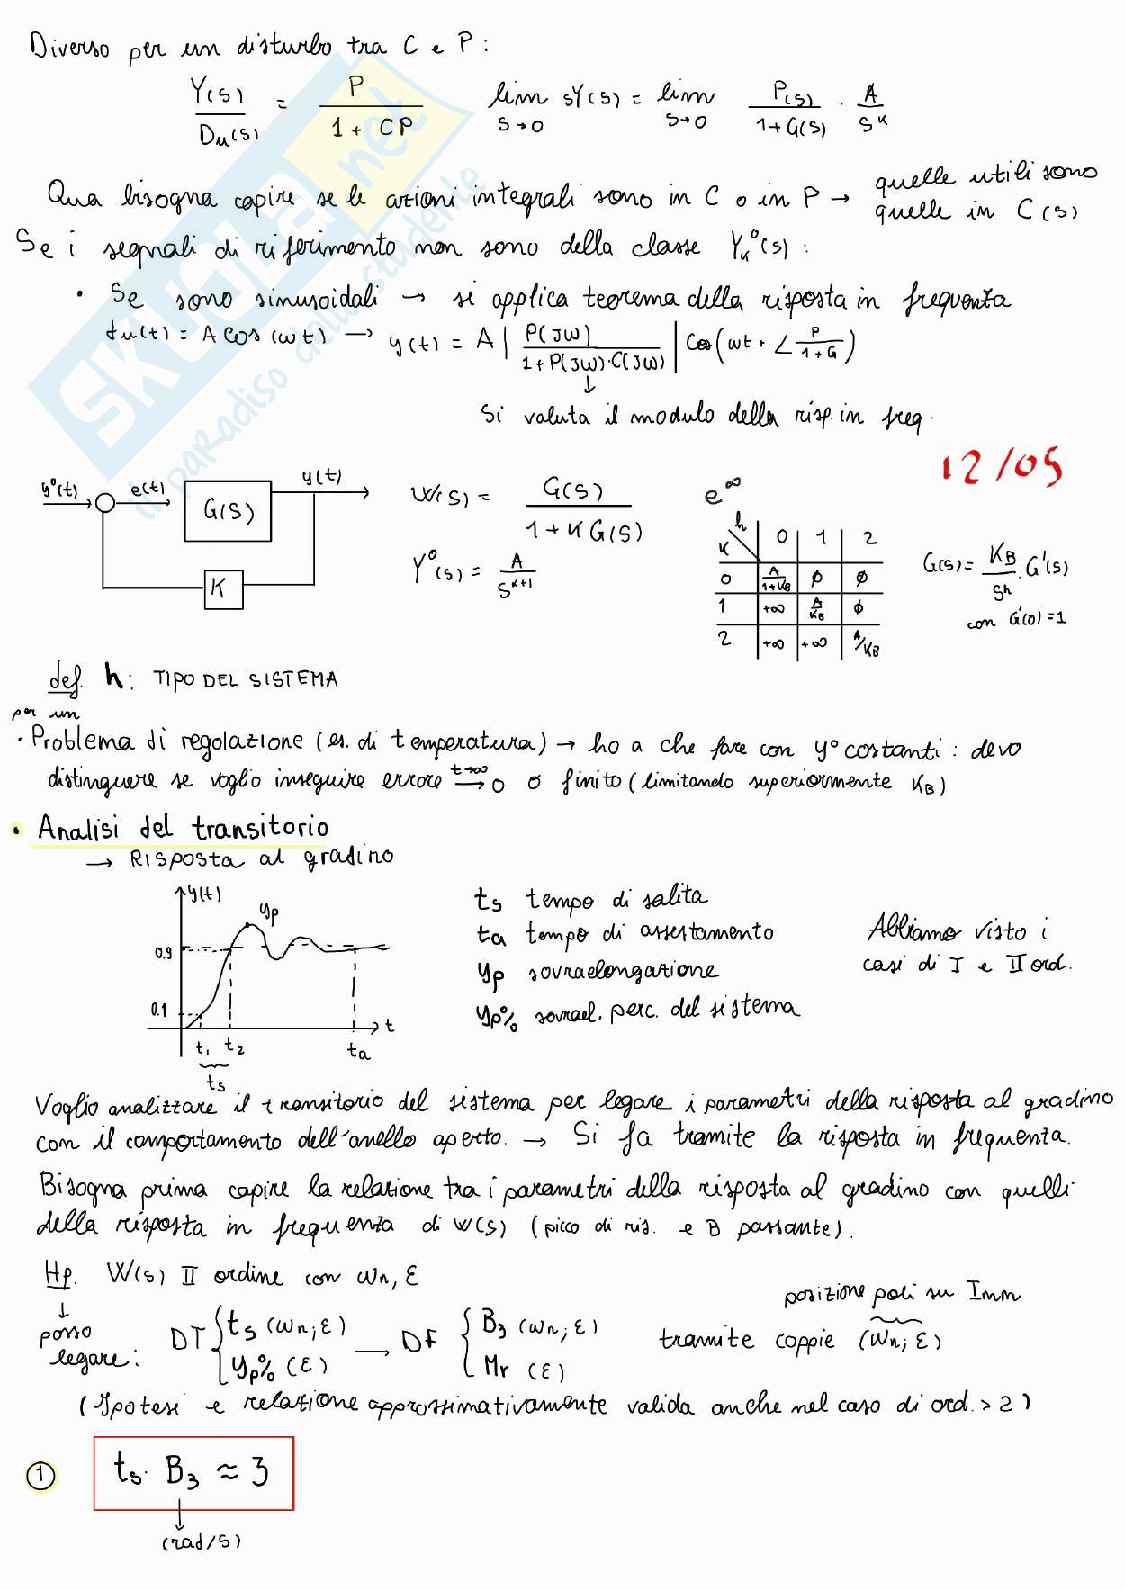 Diverso per un disturbo tra C e P:
Y(s)/Du(s) = P/(1 + CP)   lim s→0 sY(s) = lim s→0 P(s)/(1+G(s)) · A/s^k
Qua bisogna capire se le azioni integrali sono in C o in P → quelle utili sono
quelle in C(s)
Se i segnali di riferimento non sono della classe Yk°(s):
• Se sono sinusoidali → si applica teorema della risposta in frequenza
du(t) = A cos(ωt) → y(t) = A | P(jω)/(1+P(jω)·C(jω)) | cos(ωt + ∠ P/(1+G))
↓
Si valuta il modulo della risp. in freq.
12/05
y°(t) e(t) G(s) y(t) K
W(s) = G(s)/(1+K G(s))
Y°(s) = A/s^(k+1)
e∞
K h 0 1 2
0 A/(1+KB) ϕ ϕ
1 +∞ A/KB ϕ
2 +∞ +∞ A/KB
G(s) = KB/s^h · G'(s)
con G'(0)=1
def. h: TIPO DEL SISTEMA
per un
· Problema di regolazione (es. di temperatura) → ho a che fare con y° costanti: devo
distinguere se voglio inseguire errore t→∞ → 0 o finito (limitando superiormente KB)
• Analisi del transitorio
→ Risposta al gradino
y(t) yp
0.9
0.1
t1 t2 ta t
ts
ts tempo di salita
ta tempo di assestamento
yp sovraelongazione
yp% sovrael. perc. del sistema
Abbiamo visto i
casi di I e II ord.
Voglio analizzare il transitorio del sistema per legare i parametri della risposta al gradino
con il comportamento dell'anello aperto. → Si fa tramite la risposta in frequenza.
Bisogna prima capire la relazione tra i parametri della risposta al gradino con quelli
della risposta in frequenza di W(s) (picco di ris. e B passante).
Hp. W(s) II ordine con ωn, ε
↓
posso
legare:
DT { ts (ωn; ε)
yp% (ε)
→ DF { B3 (ωn; ε)
Mr (ε)
posizione poli su Imm
tramite coppie (ωn; ε)
(Ipotesi e relazione approssimativamente valida anche nel caso di ord. > 2)
① ts · B3 ≈ 3
↓
(rad/s)
SKUOLA.net
il paradiso dello studente